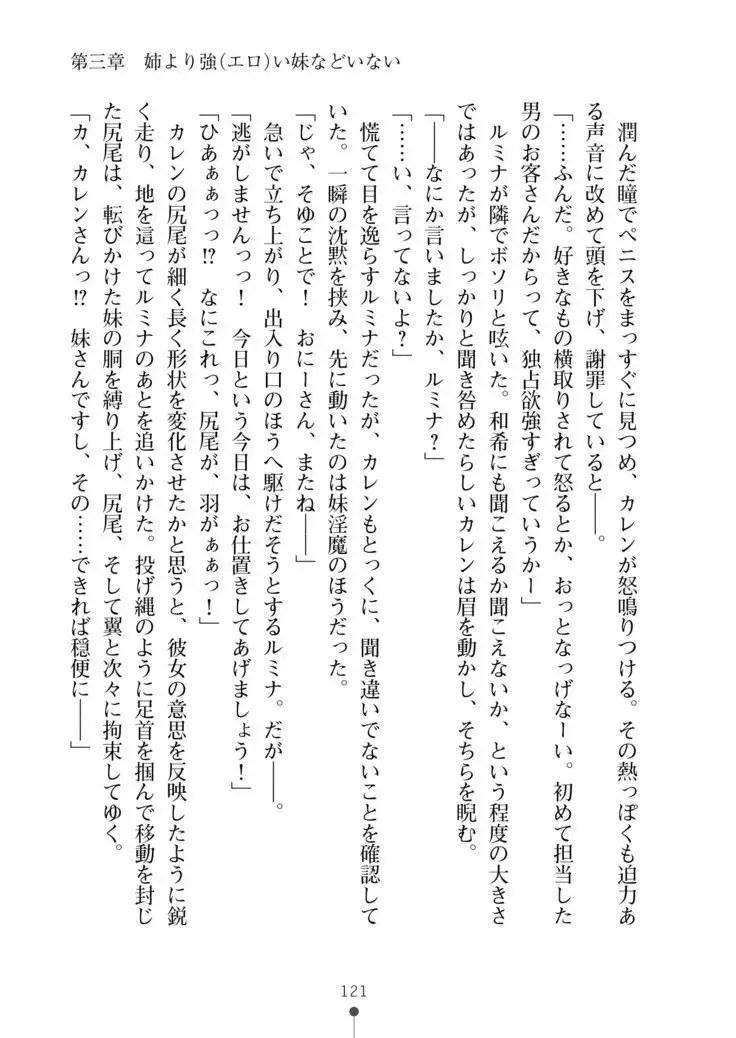 第三章　姉より強(エロ)い妹などいない
　潤んだ瞳でペニスをまっすぐに見つめ、カレンが怒鳴りつける。その熱っぽくも迫力あ
る声音に改めて頭を下げ、謝罪していると――。
「……ふんだ。好きなもの横取りされて怒るとか、おっとなっげなーい。初めて担当した
男のお客さんだからって、独占欲強すぎっていうかー」
　ルミナが隣でボソリと呟いた。和希にも聞こえるか聞こえないか、という程度の大きさ
ではあったが、しっかりと聞き咎めたらしいカレンは眉を動かし、そちらを睨む。
「――なにか言いましたか、ルミナ？」
「……い、言ってないよ？」
　慌てて目を逸らすルミナだったが、カレンもとっくに、聞き違いでないことを確認して
いた。一瞬の沈黙を挟み、先に動いたのは妹淫魔のほうだった。
「じゃ、そゆことで！　おにーさん、またね――」
　急いで立ち上がり、出入り口のほうへ駆けだそうとするルミナ。だが――。
「逃がしませんっっ！　今日という今日は、お仕置きしてあげましょう！」
「ひあぁぁっっ!?　なにこれっ、尻尾が、羽がぁぁっ！」
　カレンの尻尾が細く長く形状を変化させたかと思うと、彼女の意思を反映したように鋭
く走り、地を這ってルミナのあとを追いかけた。投げ縄のように足首を掴んで移動を封じ
た尻尾は、転びかけた妹の胴を縛り上げ、尻尾、そして翼と次々に拘束してゆく。
「カ、カレンさんっ!?　妹さんですし、その……できれば穏便に――」
121